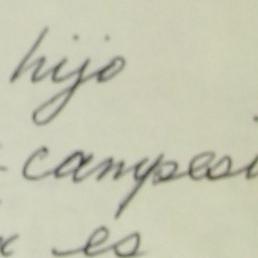 hijo
campesi
es